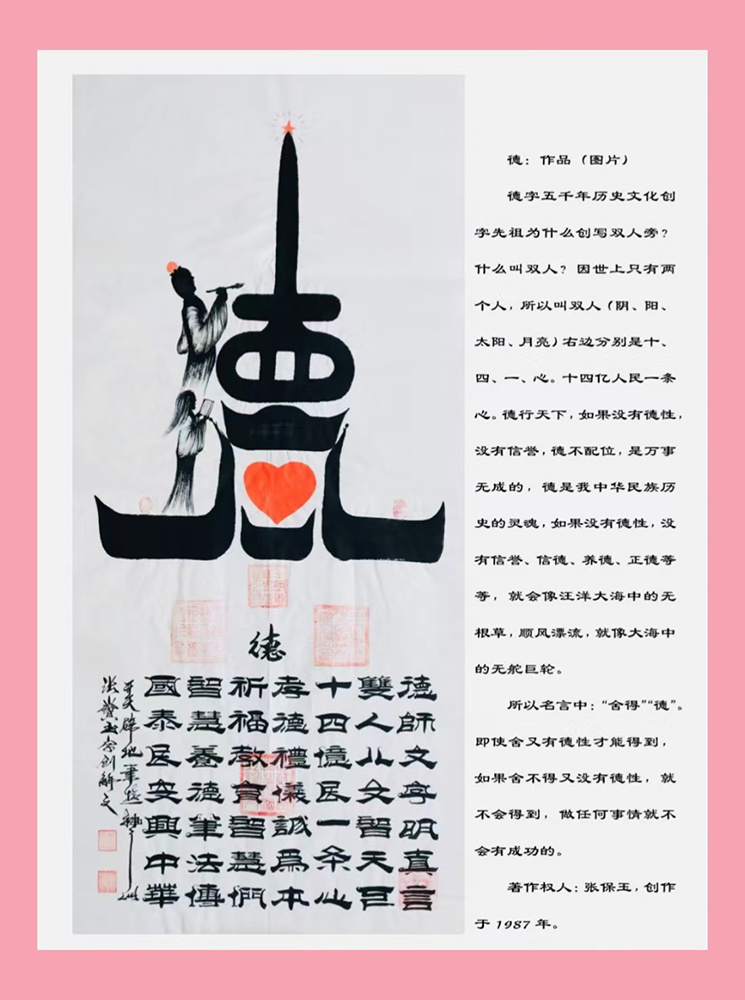 德
德師文字明真言
雙人文智天巨
十四億民一条心
孝德禮儀誠爲本
祈福教育智慧們
智慧養德筆法傳
國泰民安興中華
德：作品（图片）
德字五千年历史文化创
字先祖为什么创写双人旁？
什么叫双人？因世上只有两
个人，所以叫双人（阴、阳、
太阳、月亮）右边分别是十、
四、一、心。十四亿人民一条
心。德行天下，如果没有德性，
没有信誉，德不配位，是万事
无成的，德是我中华民族历
史的灵魂，如果没有德性，没
有信誉、信德、养德、正德等
等，就会像汪洋大海中的无
根草，顺风漂流，就像大海中
的无舵巨轮。
所以名言中：“舍得”“德”。
即使舍又有德性才能得到，
如果舍不得又没有德性，就
不会得到，做任何事情就不
会有成功的。
著作权人：张保玉，创作
于 1987 年。